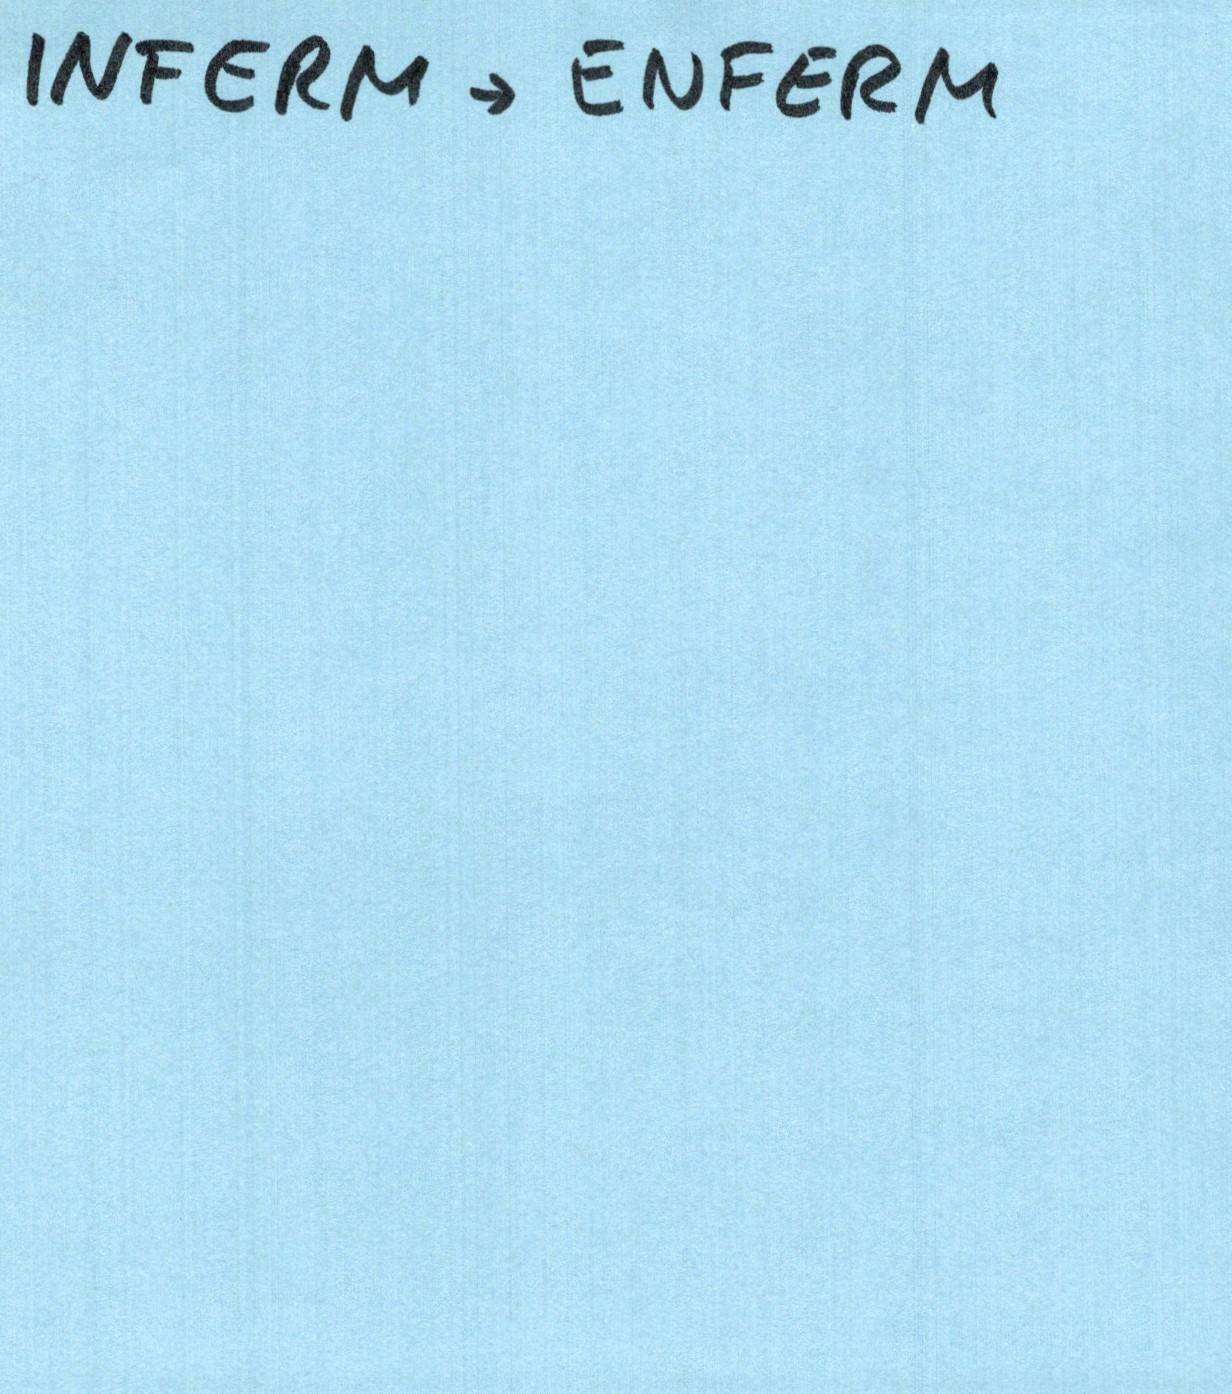 INFERM → ENFERM